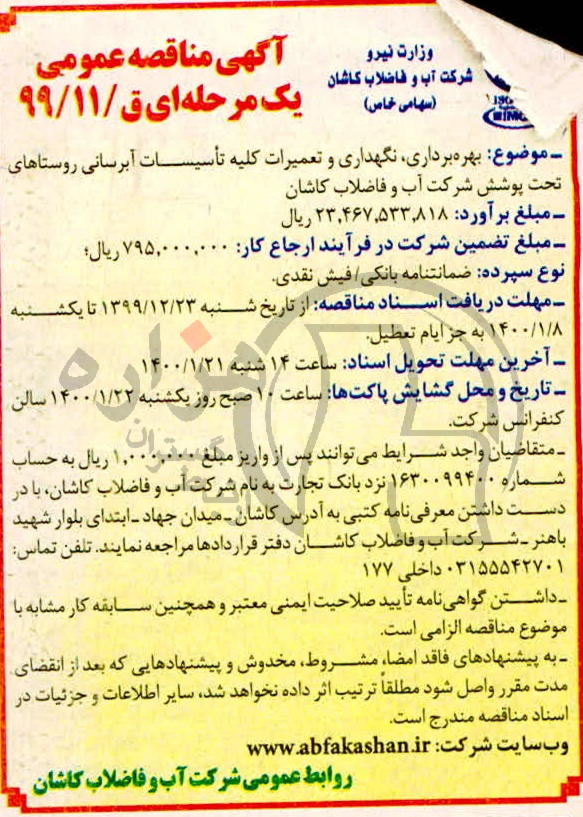 وزارت نیرو
شرکت آب و فاضلاب کاشان
(سهامی خاص)
آگهی مناقصه عمومی
یک مرحله‌ای ق/۹۹/۱۱
ـ موضوع: بهره‌برداری، نگهداری و تعمیرات کلیه تأسیسات آبرسانی روستاهای
تحت پوشش شرکت آب و فاضلاب کاشان
ـ مبلغ برآورد: ۲۳,۴۶۷,۵۳۳,۸۱۸ ریال
ـ مبلغ تضمین شرکت در فرآیند ارجاع کار: ۷۹۵,۰۰۰,۰۰۰ ریال؛
نوع سپرده: ضمانتنامه بانکی/ فیش نقدی.
ـ مهلت دریافت اسناد مناقصه: از تاریخ شنبه ۱۳۹۹/۱۲/۲۳ تا یکشنبه
۱۴۰۰/۱/۸ به جز ایام تعطیل.
ـ آخرین مهلت تحویل اسناد: ساعت ۱۴ شنبه ۱۴۰۰/۱/۲۱
ـ تاریخ و محل گشایش پاکت‌ها: ساعت ۱۰ صبح روز یکشنبه ۱۴۰۰/۱/۲۲ سالن
کنفرانس شرکت.
ـ متقاضیان واجد شرایط می‌توانند پس از واریز مبلغ ۱,۰۰۰,۰۰۰ ریال به حساب
شماره ۱۶۳۰۰۹۹۴۰۰ نزد بانک تجارت به نام شرکت آب و فاضلاب کاشان، با در
دست داشتن معرفی‌نامه کتبی به آدرس کاشان ـ میدان جهاد ـ ابتدای بلوار شهید
باهنر ـ شرکت آب و فاضلاب کاشان دفتر قراردادها مراجعه نمایند. تلفن تماس:
۰۳۱۵۵۵۴۲۷۰۱ داخلی ۱۷۷
ـ داشتن گواهی‌نامه تأیید صلاحیت ایمنی معتبر و همچنین سابقه کار مشابه با
موضوع مناقصه الزامی است.
ـ به پیشنهادهای فاقد امضا، مشروط، مخدوش و پیشنهادهایی که بعد از انقضای
مدت مقرر واصل شود مطلقاً ترتیب اثر داده نخواهد شد، سایر اطلاعات و جزئیات در
اسناد مناقصه مندرج است.
وب‌سایت شرکت: www.abfakashan.ir
روابط عمومی شرکت آب و فاضلاب کاشان
هزاره